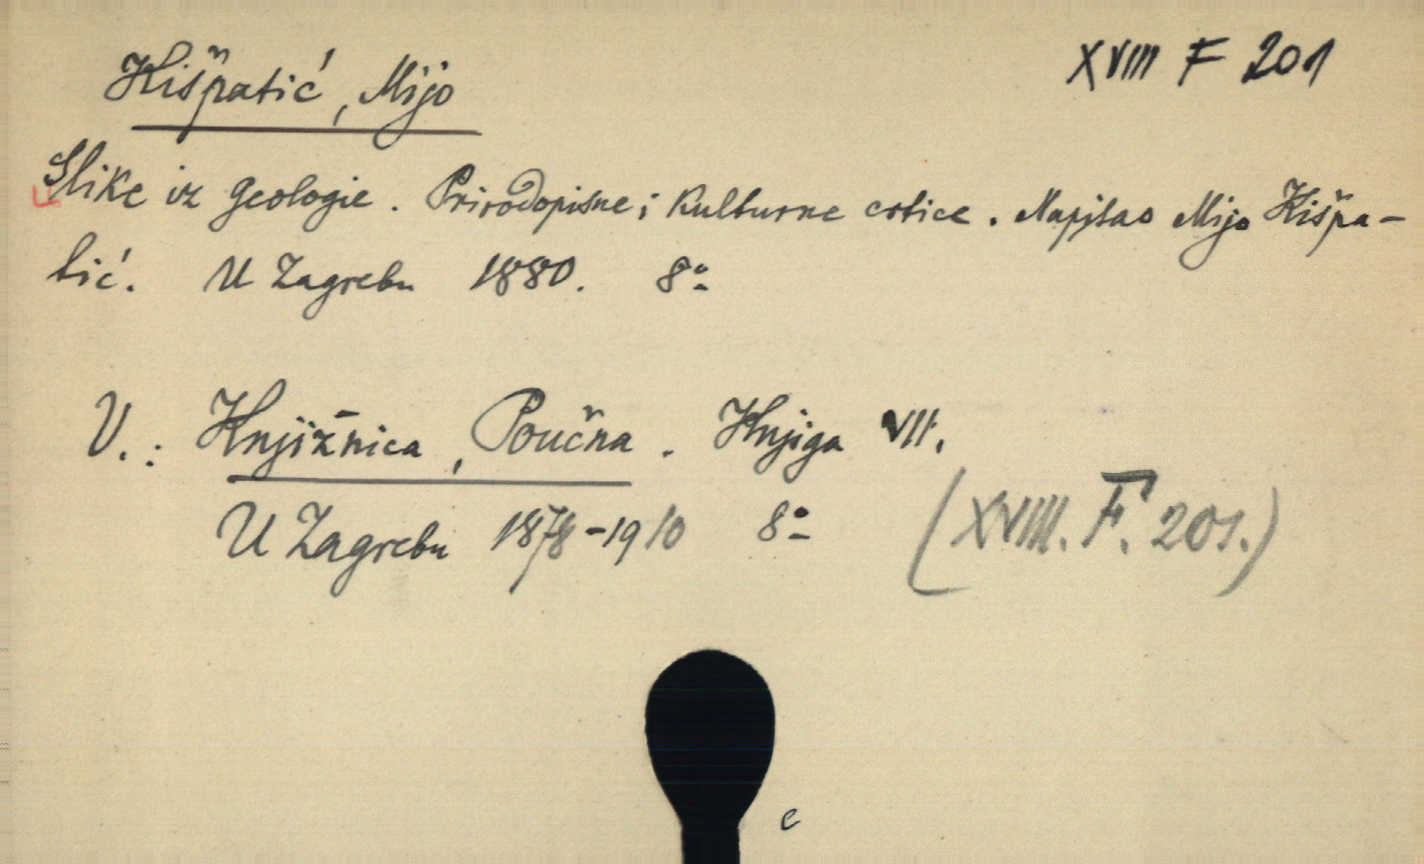 Kišpatić, Mijo
XVIII F 201
Slike iz geologie. Prirodopisne i kulturne crtice. Napisao Mijo Kišpa-
tić. U Zagrebu 1880. 8°
V.: Knjižnica, Poučna. Knjiga VII.
U Zagrebu 1878-1910 8°
(XVIII. F. 201.)
e